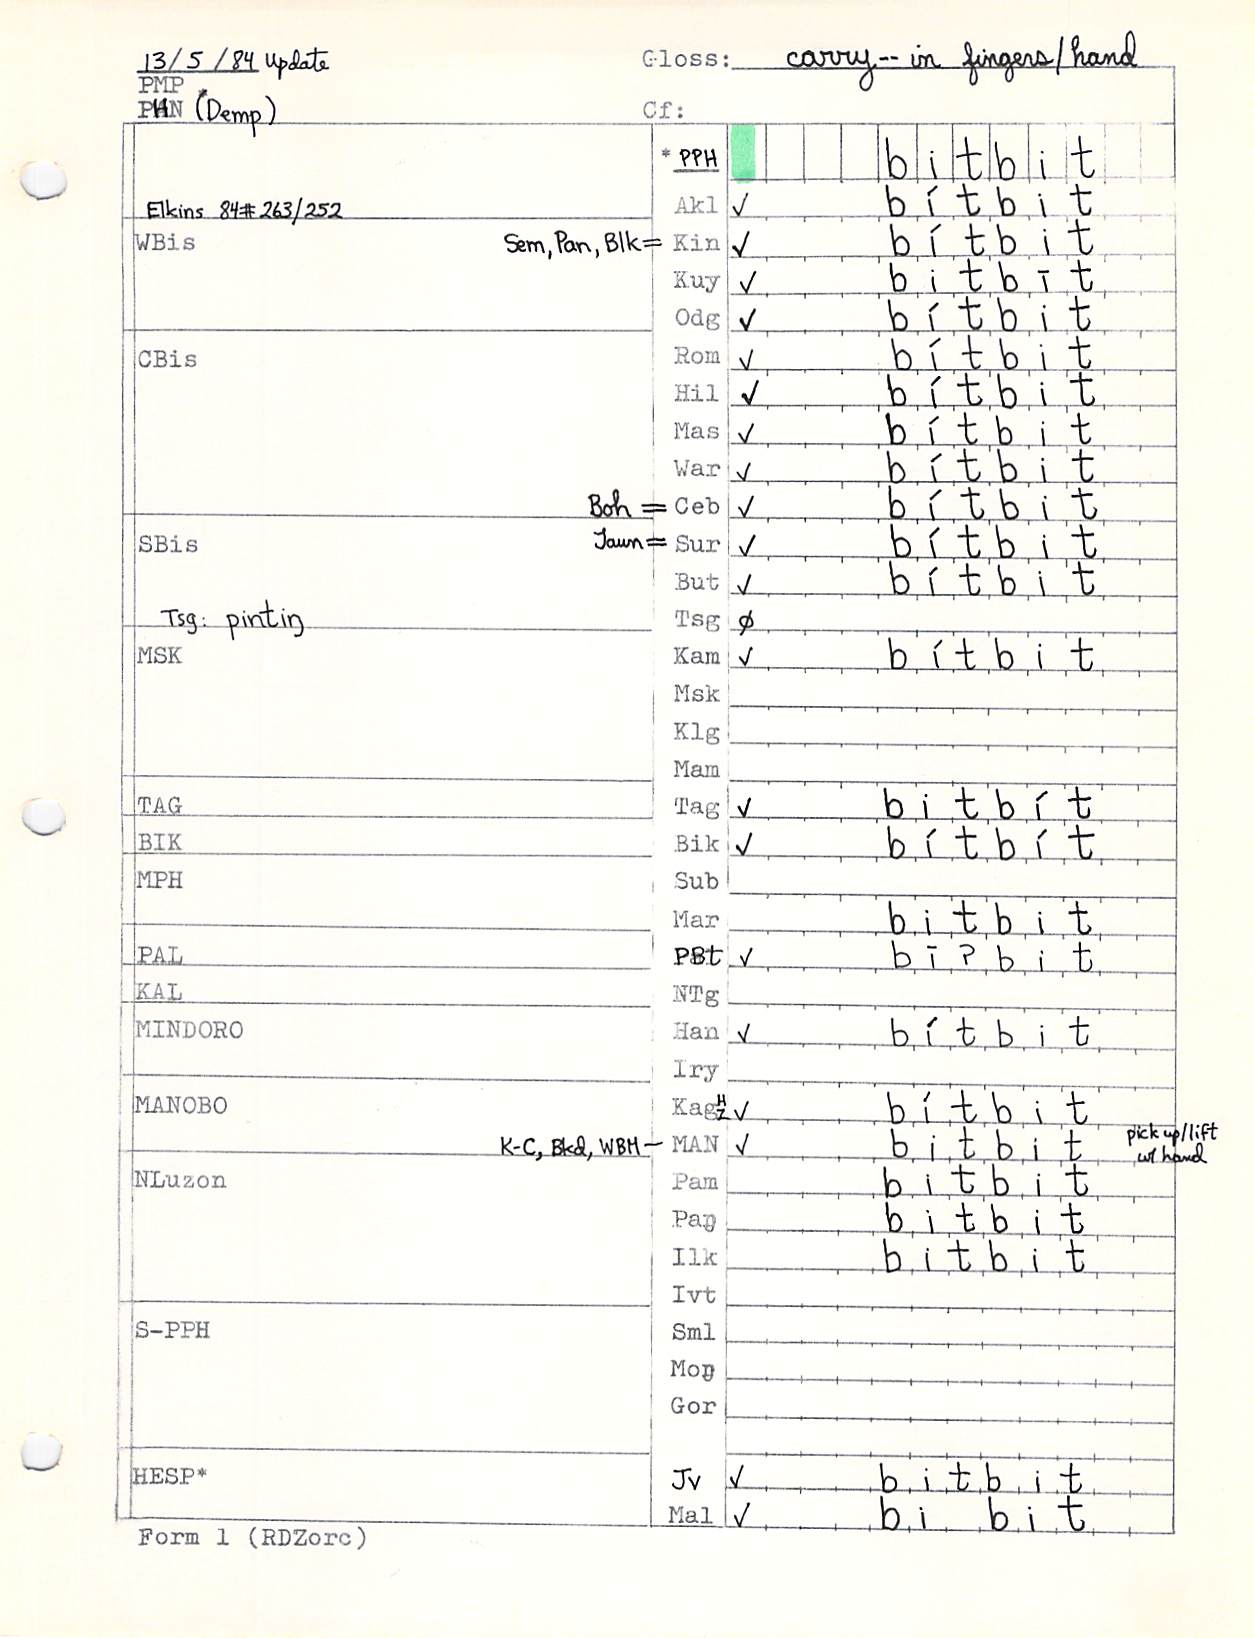 13/5/84 Update Gloss: carry-- in fingers/hand
PMP
PHN (Demp) Cf:
* PPH bitbit
Elkins 84# 263/252 Akl ✓ bítbit
WBis Sem, Pan, Blk = Kin ✓ bítbit
Kuy ✓ bitbīt
Odg ✓ bítbit
CBis Rom ✓ bítbit
Hil ✓ bítbit
Mas ✓ bítbit
War ✓ bítbit
Boh = Ceb ✓ bítbit
SBis Jaun = Sur ✓ bítbit
But ✓ bítbit
Tsg: pintiŋ Tsg ∅
MSK Kam ✓ bítbit
Msk
Klg
Mam
TAG Tag ✓ bitbít
BIK Bik ✓ bítbít
MPH Sub
Mar bitbit
PAL PBt ✓ bīʔbit
KAL NTg
MINDORO Han ✓ bítbit
Iry
MANOBO Kag H/Z ✓ bítbit
K-C, Bkd, WBM – MAN ✓ bitbit pick up/lift
w/ hand
NLuzon Pam bitbit
Paŋ bitbit
Ilk bitbit
Ivt
S-PPH Sml
Moŋ
Gor
HESP* Jv ✓ bitbit
Mal ✓ bi bit
Form 1 (RDZorc)